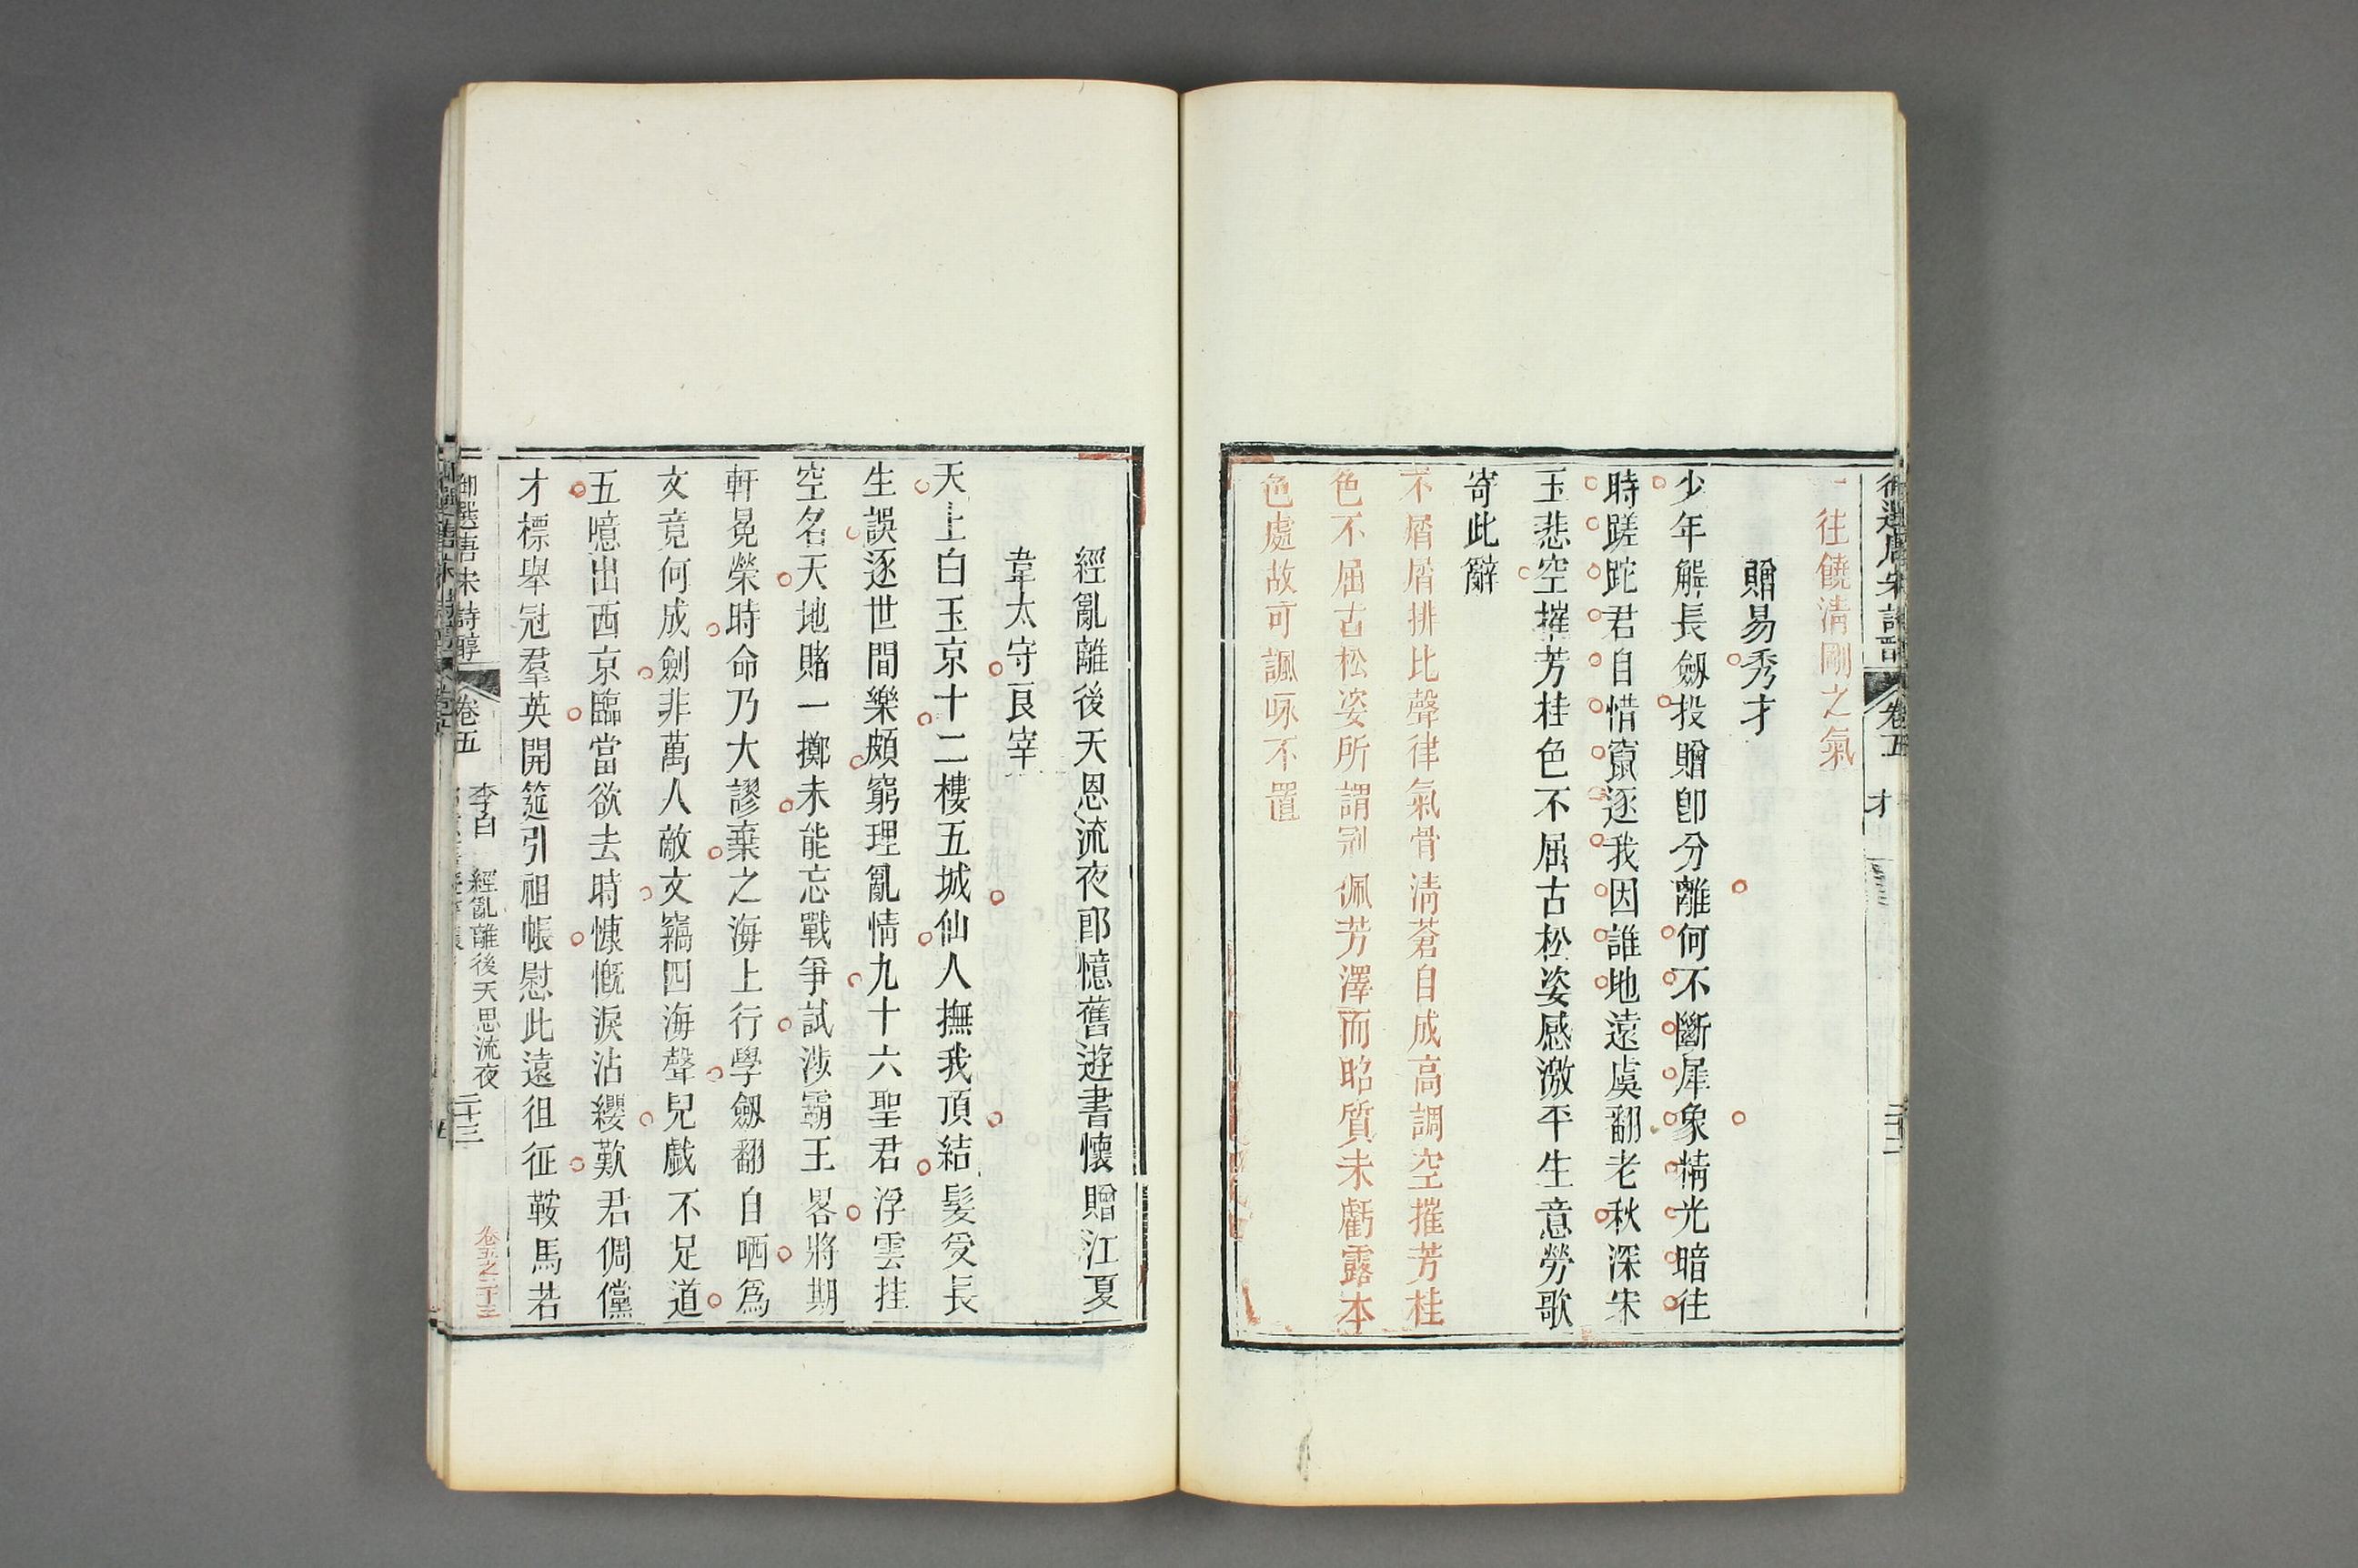 御選唐宋詩醇
卷五
一往饒清剛之氣
贈易秀才
少年解長劒投贈卽分離何不斷犀象精光暗往
時蹉跎君自惜竄逐我因誰地遠虞翻老秋深宋
玉悲空摧芳桂色不屈古松姿感激平生意勞歌
寄此辭
不屑屑排比聲律氣骨清蒼自成高調空摧芳桂
色不屈古松姿所謂剛佩芳澤而昭質未虧露本
色處故可諷咏不置
經亂離後天恩流夜郎憶舊遊書懷贈江夏
韋太守良宰
天上白玉京十二樓五城仙人撫我頂結髮受長
生誤逐世間樂頗窮理亂情九十六聖君浮雲挂
空名天地賭一擲未能忘戰爭試涉霸王畧將期
軒冕榮時命乃大謬棄之海上行學劒翻自哂爲
文竟何成劍非萬人敵文竊四海聲兒戲不足道
五噫出西京臨當欲去時慷慨淚沾纓歎君倜儻
才標舉冠羣英開筵引祖帳慰此遠徂征鞍馬若
御選唐宋詩醇
卷五
李白 經亂離後天恩流夜
二十三
卷五之二十三